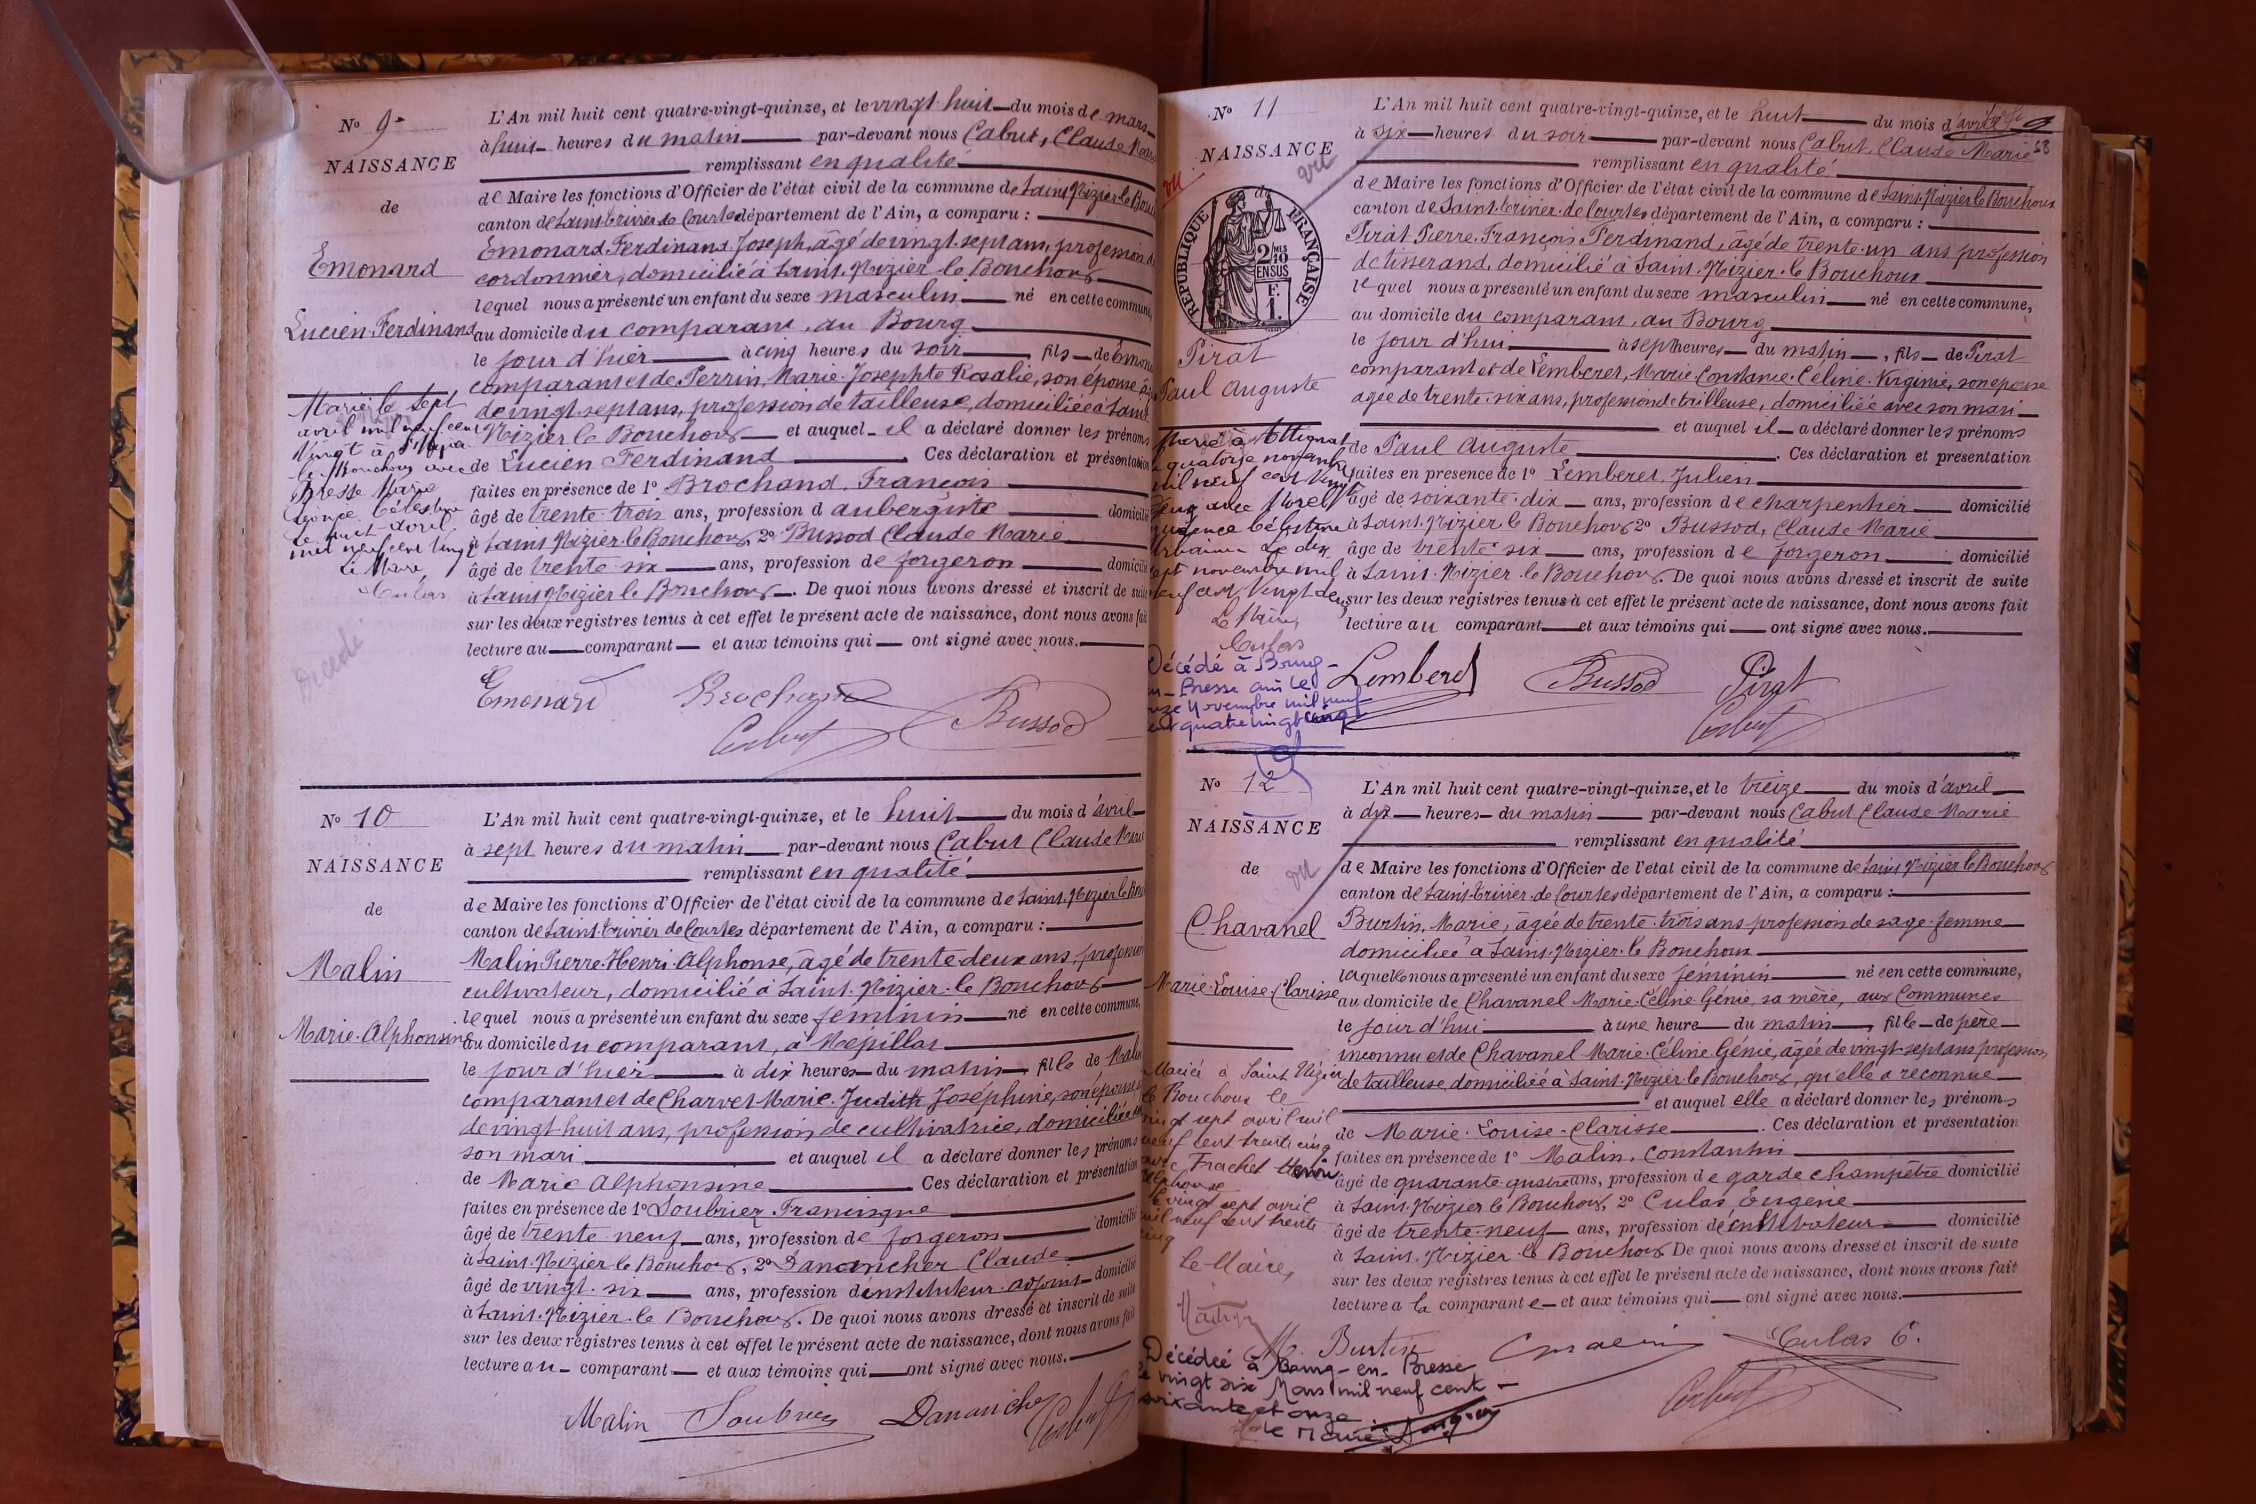 Nº 9
NAISSANCE
de
Emonard
Lucien Ferdinand
Marié le sept
avril mil neuf cent
vingt à St Nizier
le Bouchoux avec
Bresse Marie
Célestine
Le huit avril
mil neuf cent vingt
Le Maire
Culas
Décédé
L'An mil huit cent quatre-vingt-quinze, et le vingt huit du mois de mars
à huit heures du matin par-devant nous Cabut, Claude Marie
remplissant en qualité
de Maire les fonctions d'Officier de l'état civil de la commune de Saint Nizier le Bouchoux
canton de Saint Trivier de Courtes département de l'Ain, a comparu :
Emonard Ferdinand Joseph, âgé de vingt sept ans, profession de
cordonnier, domicilié à Saint Nizier le Bouchoux
lequel nous a présenté un enfant du sexe masculin né en cette commune,
au domicile du comparant, au Bourg
le jour d'hier à cinq heures du soir fils de Emonard
comparant et de Perrin, Marie Josephte Rosalie, son épouse, âgée
de vingt sept ans, profession de tailleuse, domiciliée à Saint
Nizier le Bouchoux et auquel il a déclaré donner les prénoms
de Lucien Ferdinand Ces déclaration et présentation
faites en présence de 1º Brochand, François
âgé de trente trois ans, profession d'aubergiste domicilié
à Saint Nizier le Bouchoux, 2º Bussod Claude Marie
âgé de trente six ans, profession de forgeron domicilié
à Saint Nizier le Bouchoux. De quoi nous avons dressé et inscrit de suite
sur les deux registres tenus à cet effet le présent acte de naissance, dont nous avons fait
lecture au comparant et aux témoins qui ont signé avec nous.
Emonard Brochand
Cabut Bussod
Nº 10
NAISSANCE
de
Malin
Marie Alphonsine
L'An mil huit cent quatre-vingt-quinze, et le huit du mois d'avril
à sept heures du matin par-devant nous Cabut Claude Marie
remplissant en qualité
de Maire les fonctions d'Officier de l'état civil de la commune de Saint Nizier le Bouchoux
canton de Saint Trivier de Courtes département de l'Ain, a comparu :
Malin Pierre Henri Alphonse, âgé de trente deux ans, profession
cultivateur, domicilié à Saint Nizier le Bouchoux
lequel nous a présenté un enfant du sexe féminin né en cette commune,
au domicile du comparant, à Mépillat
le jour d'hier à dix heures du matin, fille de Malin
comparant et de Charvet Marie Judith Joséphine, son épouse
de vingt huit ans, profession de cultivatrice, domiciliée avec
son mari et auquel il a déclaré donner les prénoms
de Marie Alphonsine Ces déclaration et présentation
faites en présence de 1º Soubrier Francisque
âgé de trente neuf ans, profession de forgeron domicilié
à Saint Nizier le Bouchoux, 2º Danancher Claude
âgé de vingt six ans, profession d'instituteur adjoint domicilié
à Saint Nizier le Bouchoux. De quoi nous avons dressé et inscrit de suite
sur les deux registres tenus à cet effet le présent acte de naissance, dont nous avons fait
lecture au comparant et aux témoins qui ont signé avec nous.
Malin Soubrier Danancher Cabut
Nº 11
NAISSANCE
vu
vu
RÉPUBLIQUE FRANÇAISE
2/10 EN SUS
F. 1.
Pirat
Paul Auguste
Marié à Attignat
le quatorze novembre
mil neuf cent vingt
deux avec Morellet
Célestine
Le dix
sept novembre mil
neuf cent vingt deux
Le Maire,
Culas
Décédé à Bourg-
en-Bresse Ain le
onze Novembre mil neuf
cent quatre vingt cinq
L'An mil huit cent quatre-vingt-quinze, et le huit du mois d'avril
à six heures du soir par-devant nous Cabut, Claude Marie
remplissant en qualité
de Maire les fonctions d'Officier de l'état civil de la commune de Saint Nizier le Bouchoux
canton de Saint Trivier de Courtes département de l'Ain, a comparu :
Pirat Pierre François Ferdinand, âgé de trente un ans profession
de tisserand, domicilié à Saint Nizier le Bouchoux
lequel nous a présenté un enfant du sexe masculin né en cette commune,
au domicile du comparant, au Bourg
le jour d'hui à sept heures du matin, fils de Pirat
comparant et de Lemberet, Marie Constance Céline Virginie, son épouse
âgée de trente six ans, profession de tailleuse, domiciliée avec son mari
et auquel il a déclaré donner les prénoms
de Paul Auguste. Ces déclaration et présentation
faites en présence de 1º Lemberet, Julien
âgé de soixante dix ans, profession de charpentier domicilié
à Saint Nizier le Bouchoux 2º Bussod, Claude Marie
âgé de trente six ans, profession de forgeron domicilié
à Saint Nizier le Bouchoux. De quoi nous avons dressé et inscrit de suite
sur les deux registres tenus à cet effet le présent acte de naissance, dont nous avons fait
lecture au comparant et aux témoins qui ont signé avec nous.
Lemberet Bussod Pirat
Cabut
Nº 12
NAISSANCE
de
vu
Chavanel
Marie Louise Clarisse
Mariée à Saint Nizier
le Bouchoux le
vingt sept avril mil
neuf cent trente cinq
avec Frachet Henri
Alphonse
Le vingt sept avril
mil neuf cent trente
cinq
Le Maire,
Décédée à Bourg-en-Bresse
le vingt six Mars mil neuf cent
soixante et onze
Le Maire
L'An mil huit cent quatre-vingt-quinze, et le treize du mois d'avril
à dix heures du matin par-devant nous Cabut Claude Marie
remplissant en qualité
de Maire les fonctions d'Officier de l'état civil de la commune de Saint Nizier le Bouchoux
canton de Saint Trivier de Courtes département de l'Ain, a comparu :
Burtin, Marie, âgée de trente trois ans profession de sage femme
domiciliée à Saint Nizier le Bouchoux
laquelle nous a présenté un enfant du sexe féminin née en cette commune,
au domicile de Chavanel Marie Céline Génie, sa mère, aux Communes
le jour d'hui à une heure du matin, fille de père
inconnu et de Chavanel Marie Céline Génie, âgée de vingt sept ans profession
de tailleuse, domiciliée à Saint Nizier le Bouchoux, qu'elle a reconnue
et auquel elle a déclaré donner les prénoms
de Marie Louise Clarisse. Ces déclaration et présentation
faites en présence de 1º Malin, Constantin
âgé de quarante quatre ans, profession de garde champêtre domicilié
à Saint Nizier le Bouchoux, 2º Culas Eugène
âgé de trente neuf ans, profession de cultivateur domicilié
à Saint Nizier le Bouchoux De quoi nous avons dressé et inscrit de suite
sur les deux registres tenus à cet effet le présent acte de naissance, dont nous avons fait
lecture a la comparante et aux témoins qui ont signé avec nous.
M. Burtin C Malin Culas E.
Cabut